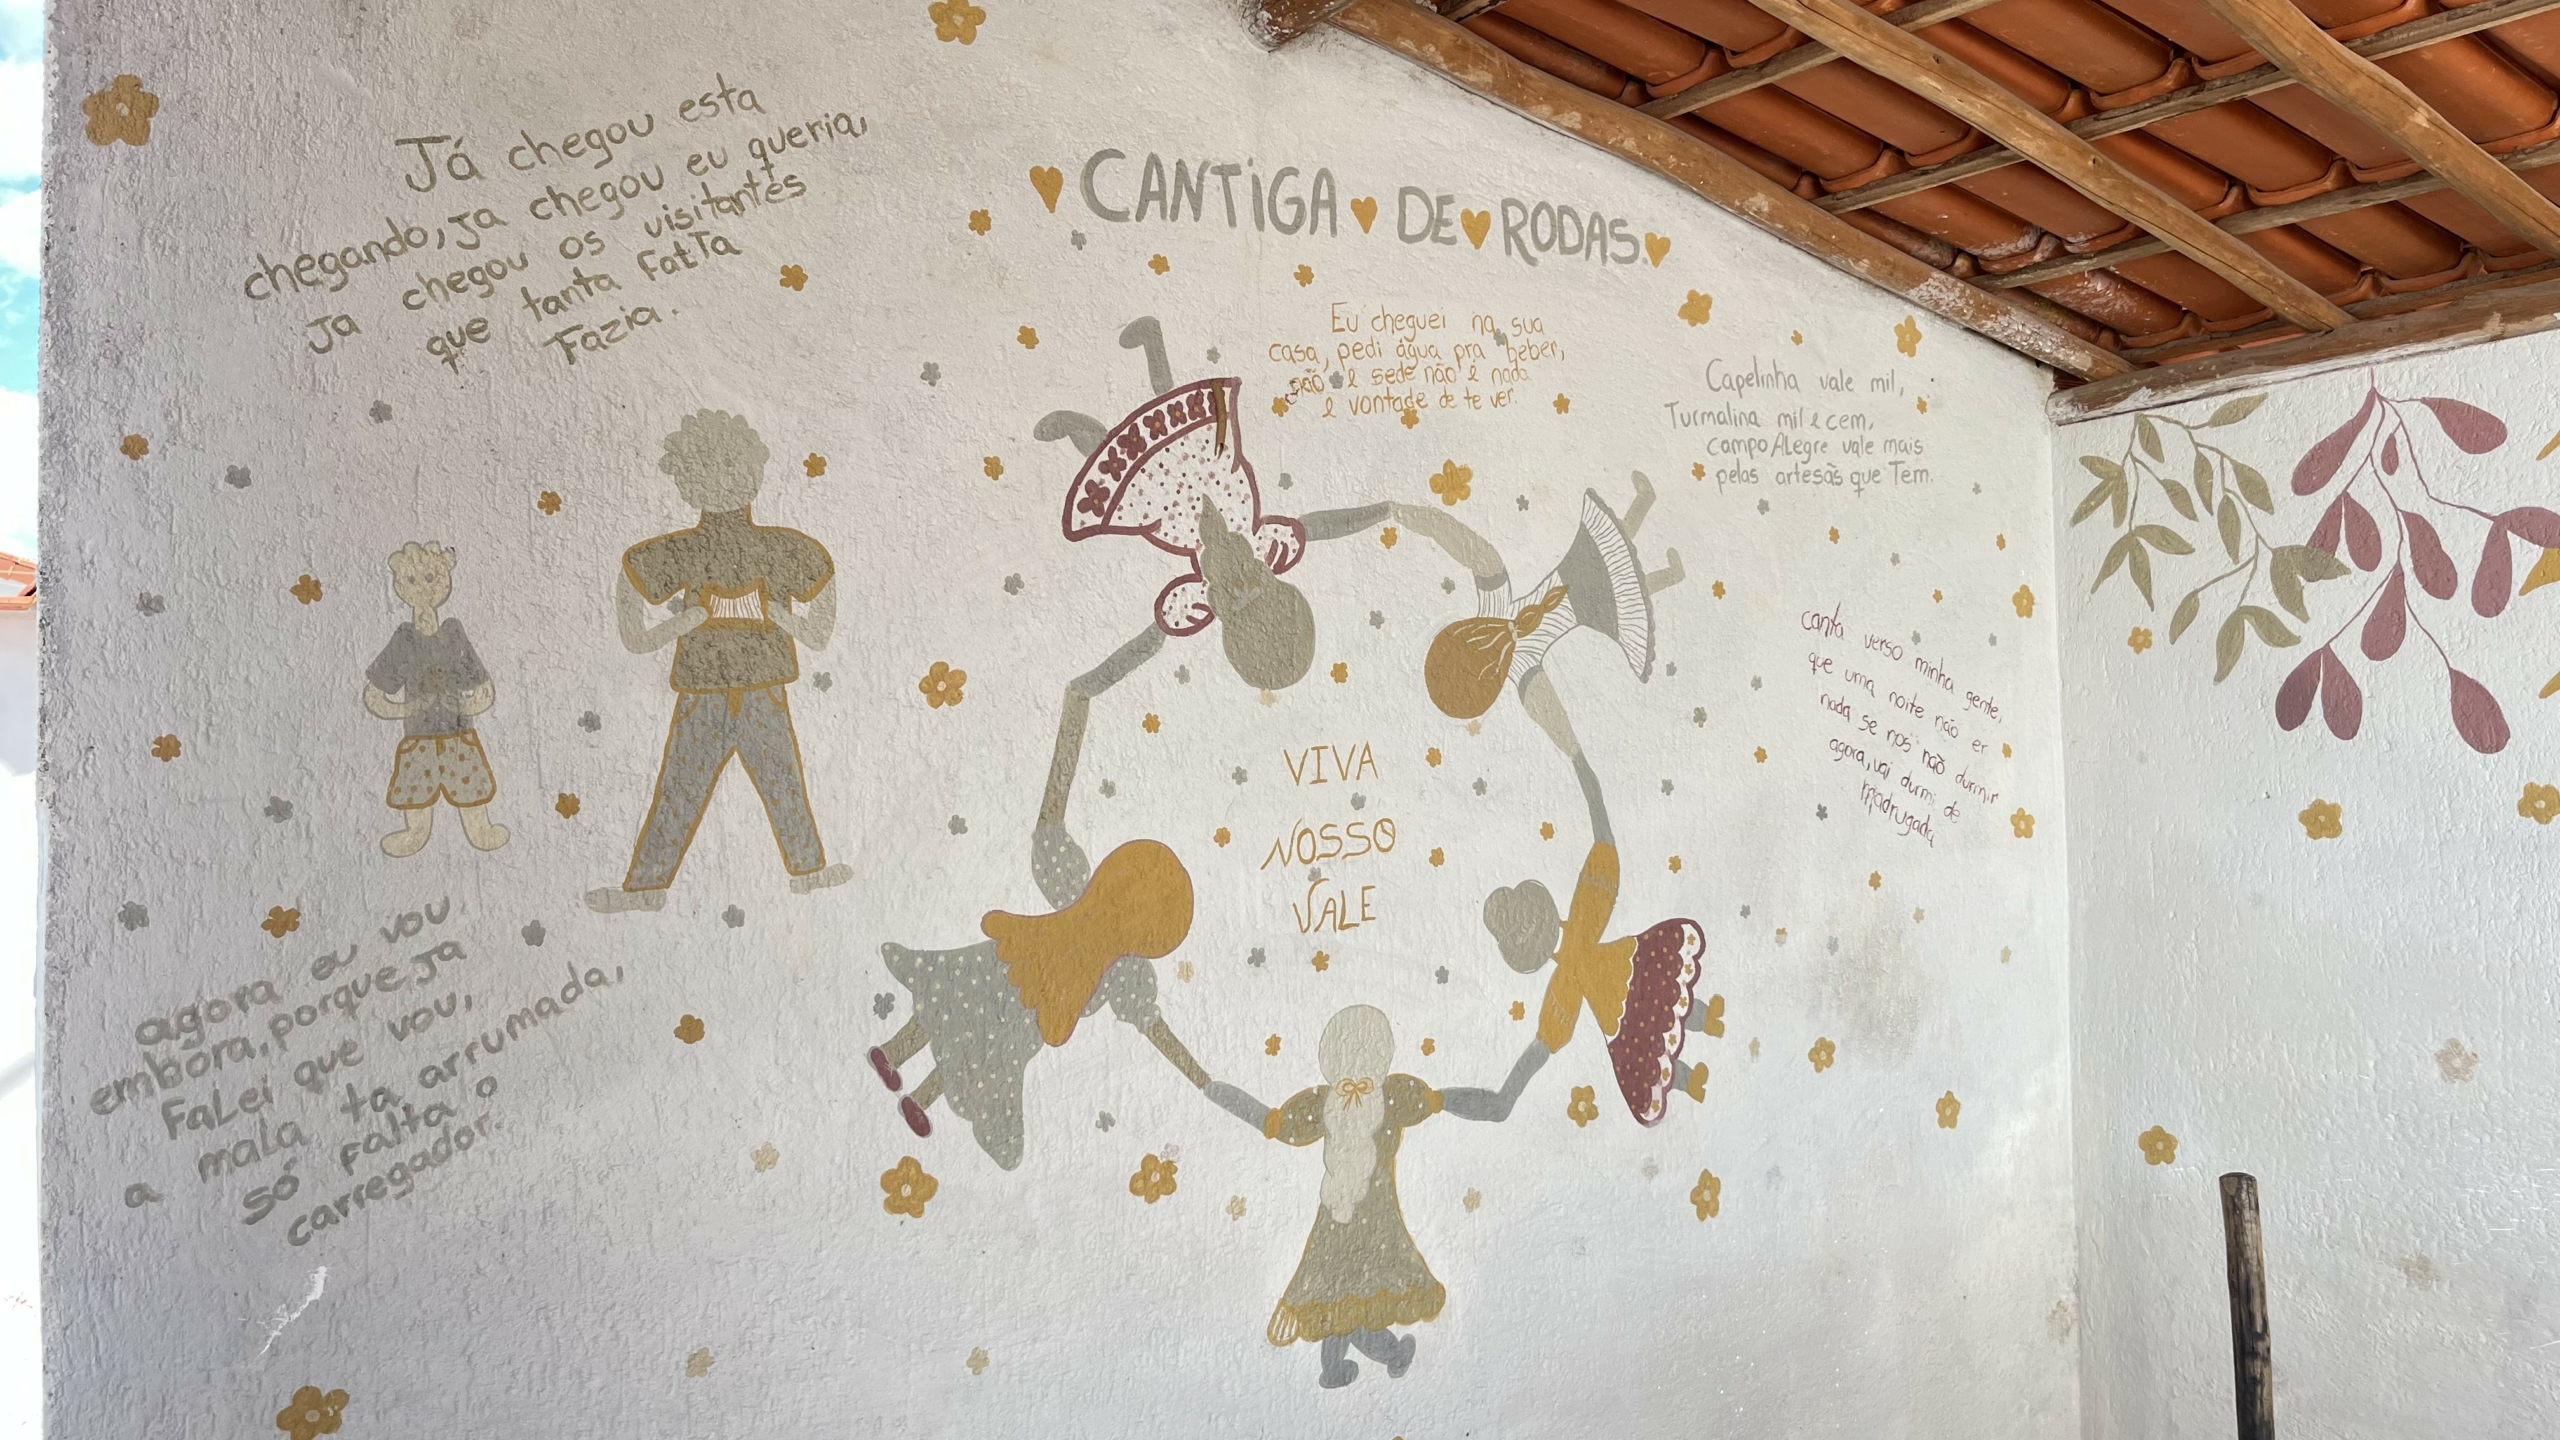 Já chegou esta
chegando, ja chegou eu queria,
Ja chegou os visitantes
que tanta FatTa
Fazia.
CANTiGA DE RODAS.
Eu cheguei na sua
casa, pedi água pra beber,
não é sede não é nada
é vontade de te ver.
Capelinha vale mil,
Turmalina mil e cem,
campo ALegre vale mais
pelas artesãs que Tem.
canta verso minha gente,
que uma noite não er
nada se nos não durmir
agora, vai durmi de
madrugada
VIVA
NOSSO
VALE
agora eu vou
embora, porque Ja
FaLei que vou,
a mala ta arrumada,
só falta o
carregador.